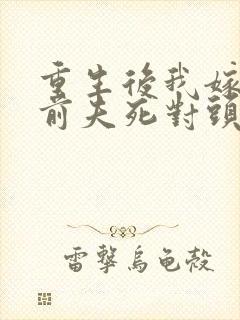 重生後我嫁
前夫死對頭
雷擊烏龜殼